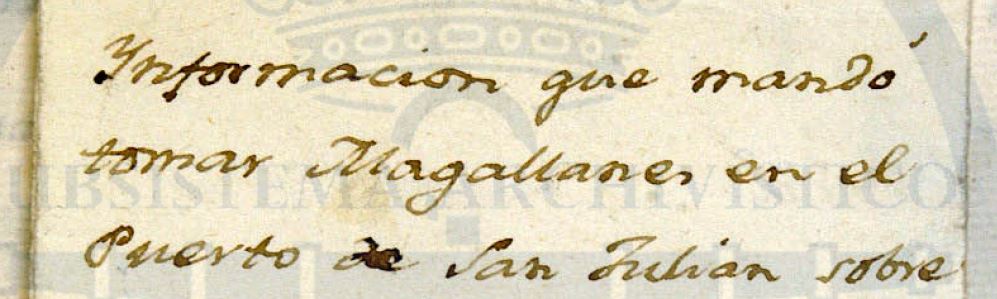 Ynformacion que mandó
tomar Magallanes en el
Puerto de San Julian sobre
UBSISTEMA ARCHIVÍSTICO